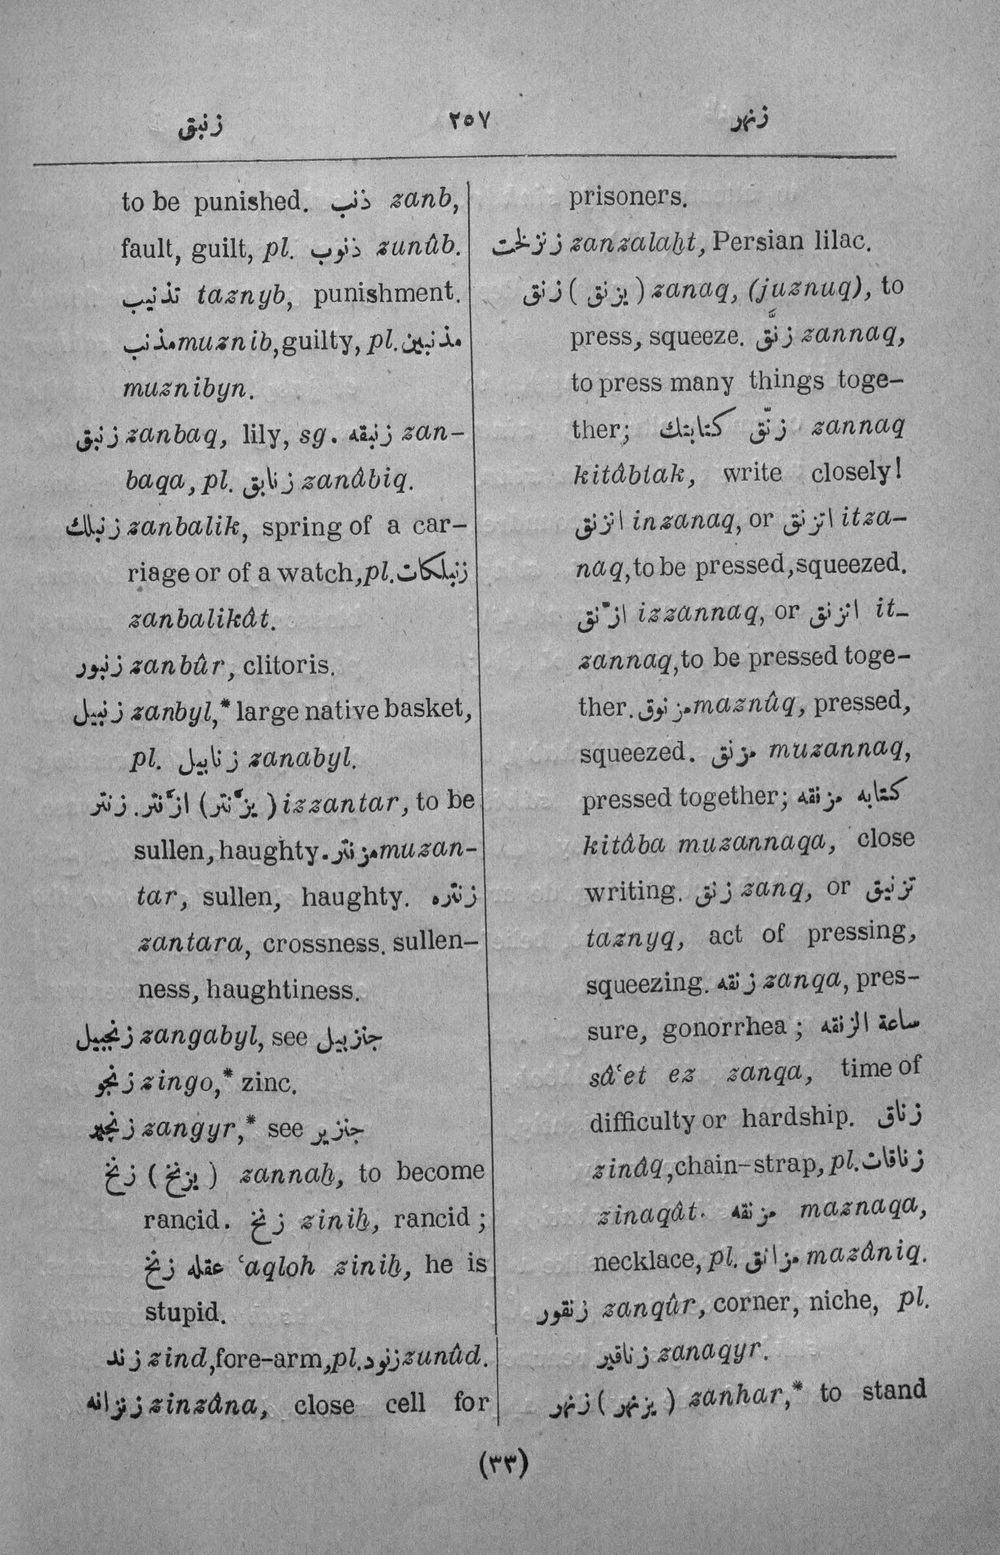 زنبق ٢٥٧ زنهر
to be punished. ذنب zanb,
fault, guilt, pl. ذنوب zunûb.
تذنيب taznyb, punishment.
مذنب muznib, guilty, pl. مذنبين
muznibyn.
زنبق zanbaq, lily, sg. زنبقه zan-
baqa, pl. زنابق zanâbiq.
زنبلك zanbalik, spring of a car-
riage or of a watch, pl. زنبلكات
zanbalikât.
زنبور zanbûr, clitoris.
زنبيل zanbyl,* large native basket,
pl. زنابيل zanabyl.
زنتر. ازّنتر (يزّنتر) izzantar, to be
sullen, haughty. مزنتر muzan-
tar, sullen, haughty. زنتره
zantara, crossness. sullen-
ness, haughtiness.
زنجبيل zangabyl, see جنزبيل
زنجو zingo,* zinc.
زنجير zangyr,* see جنزير
زنخ (يزنخ) zannaḫ, to become
rancid. زنخ ziniḫ, rancid;
عقله زنخ ʿaqloh ziniḫ, he is
stupid.
زند zind, fore-arm, pl. زنود zunûd.
زنزانه zinzâna, close cell for
prisoners.
زنزلخت zanzalaḫt, Persian lilac.
زنق (يزنق) zanaq, (juznuq), to
press, squeeze. زنَّق zannaq,
to press many things toge-
ther; زنّق كتابتك zannaq
kitâbtak, write closely!
انزنق inzanaq, or اتزنق itza-
naq, to be pressed, squeezed.
ازّنق izzannaq, or اتزنق it-
zannaq, to be pressed toge-
ther. مزنوق maznûq, pressed,
squeezed. مزنق muzannaq,
pressed together; كتابه مزنقه
kitâba muzannaqa, close
writing. زنق zanq, or تزنيق
taznyq, act of pressing,
squeezing. زنقه zanqa, pres-
sure, gonorrhea; ساعة الزنقه
sâʿet ez zanqa, time of
difficulty or hardship. زناق
zinâq, chain-strap, pl. زناقات
zinaqât. مزنقه maznaqa,
necklace, pl. مزانق mazâniq.
زنقور zanqûr, corner, niche, pl.
زناقير zanaqyr.
زنهر (يزنهر) zanhar,* to stand
(٣٣)